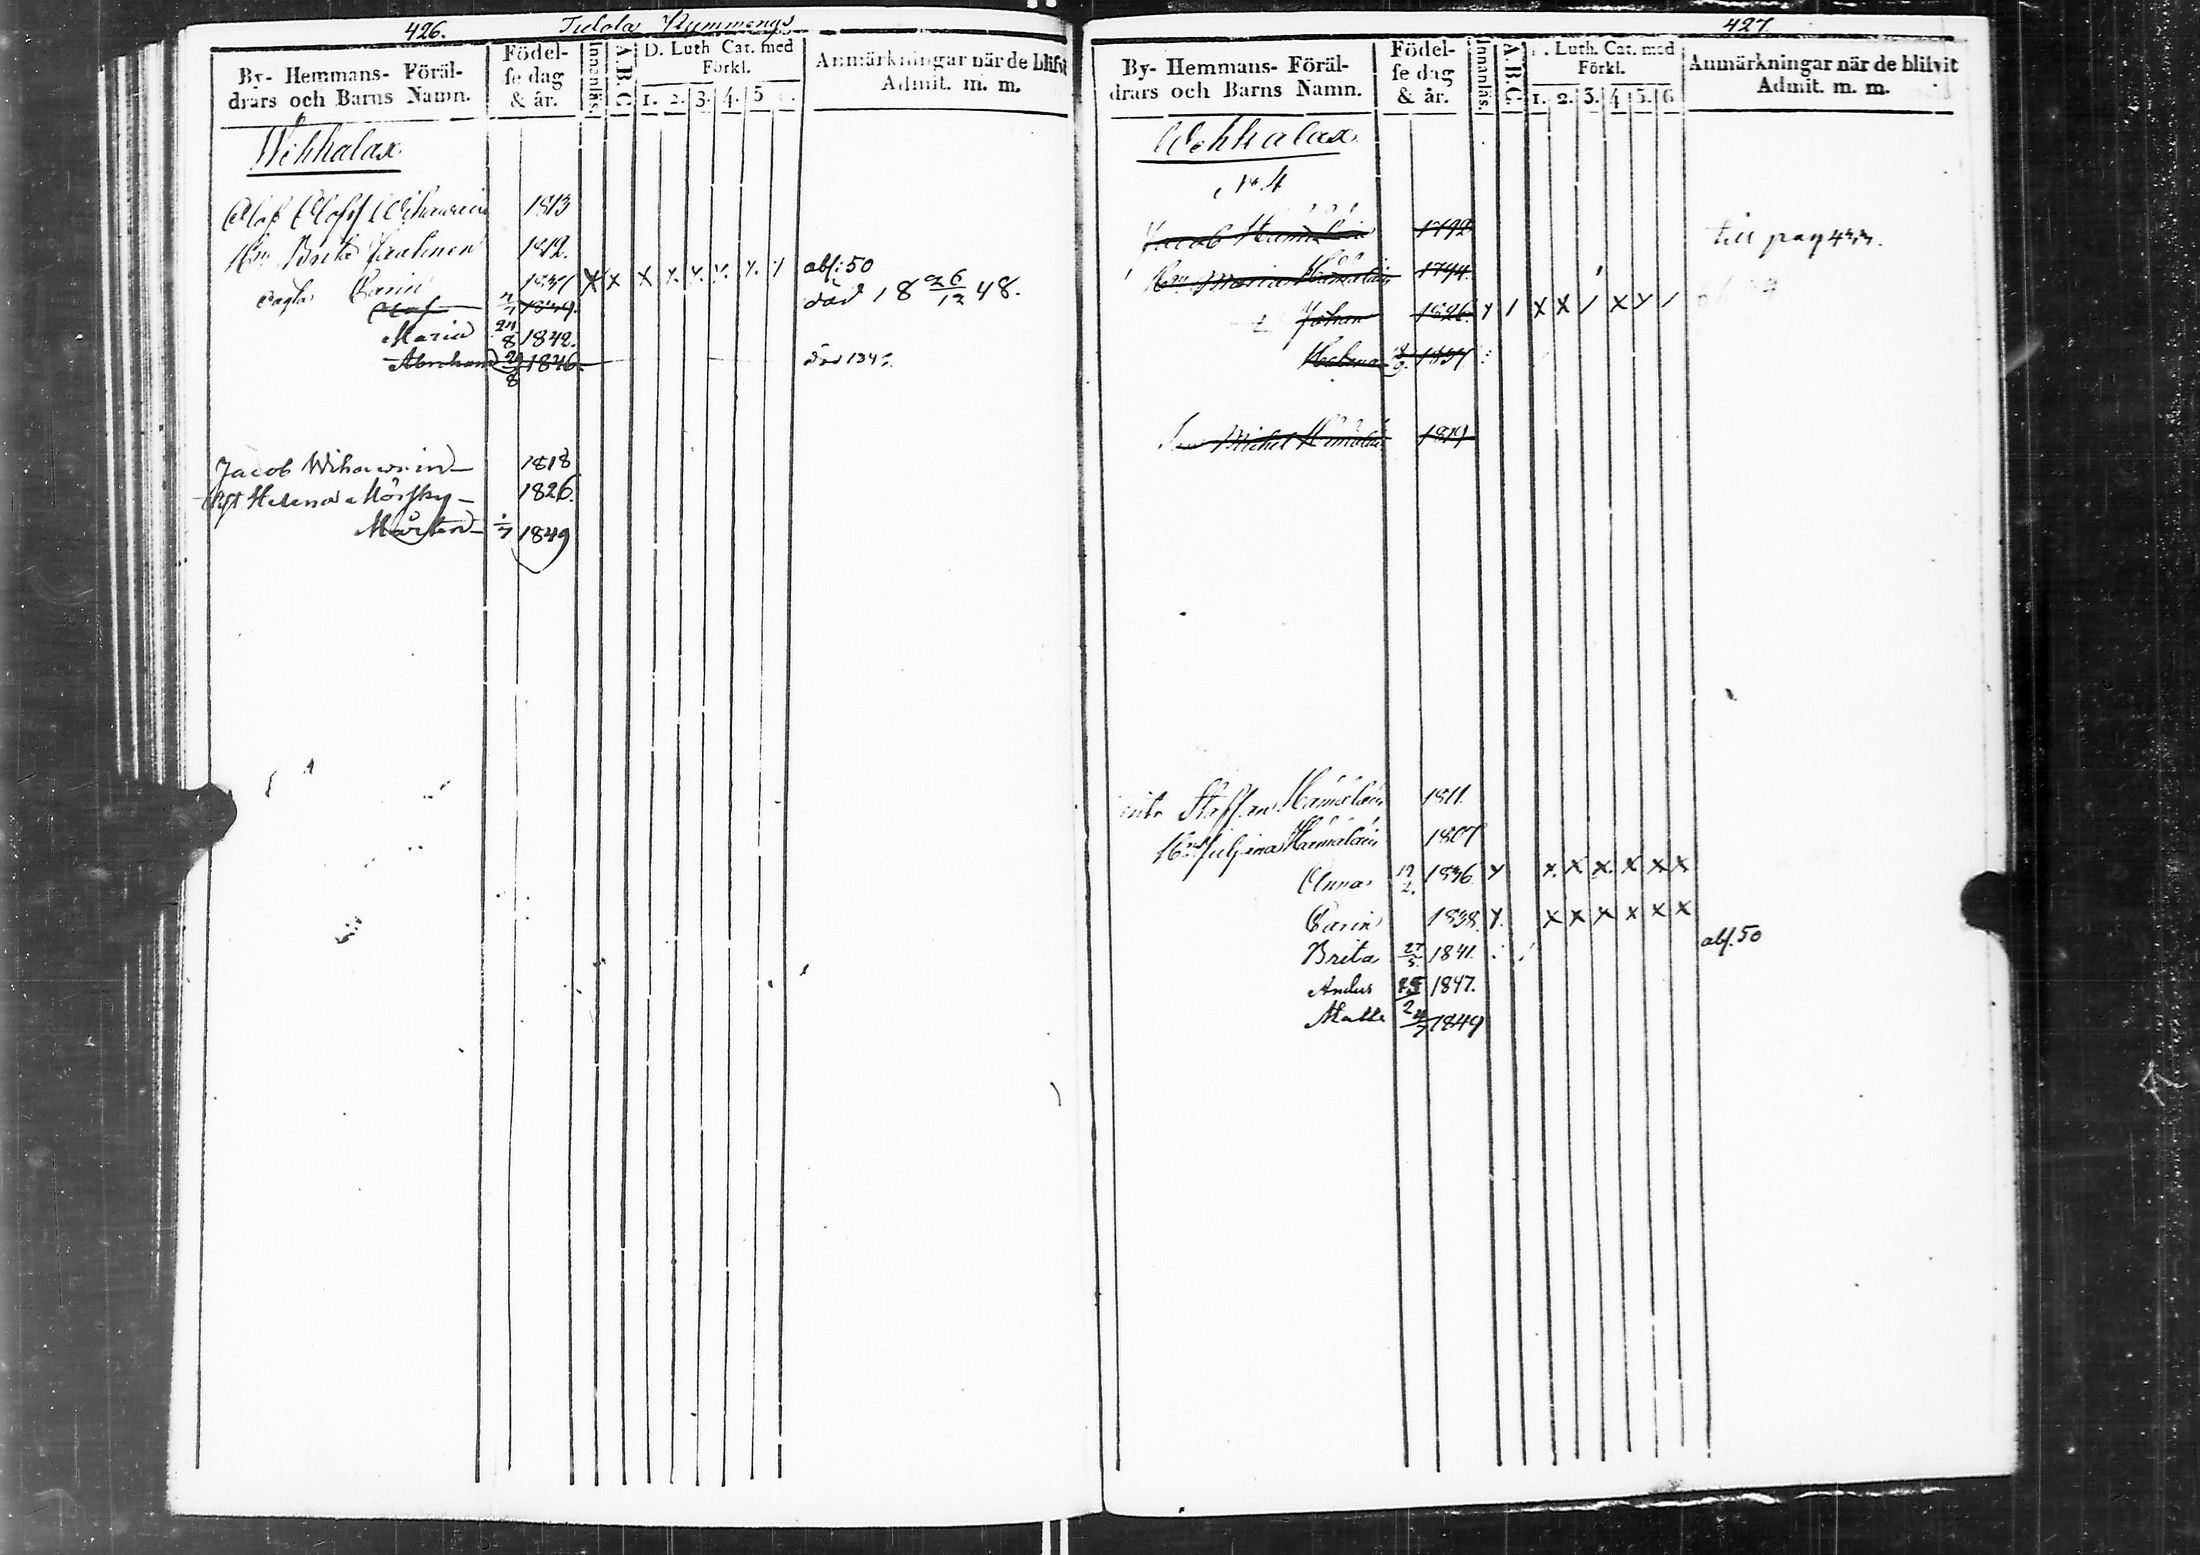 426. Tulola Kymmengs
By- Hemmans- Föräl-
drars och Barns Namn.
Födel-
se dag
& år.
Innanläs.
A.B.C.
D. Luth. Cat. med
Förkl.
1. 2. 3. 4. 5
Anmärkningar när de blifvit
Admit. m. m.
Wehkalax
Olof Olofss Wihawain 1813
Hu Brita 1812.
Carin 1837 X X X X. X. X. X. X abs: 50
Olof 1839. död 18 26/12 48.
Maria 24/8 1842.
Abraham 29/8 1846. död 184
Jacob Wihawain 1818
Hust Helena Mörsky 1826.
Mårten 1/7 1849
427.
By- Hemmans- Föräl-
drars och Barns Namn.
Födel-
se dag
& år.
Innanläs.
A.B.C.
Luth. Cat. med
Förkl.
1. 2. 3. 4 5. 6
Anmärkningar när de blifvit
Admit. m. m.
Wehkalax
No. 4
Jacob Hämäläin 1792 till pag 433.
Hu Maria Hämäläin 1794.
Johan 1826. X / X X / X X /
Helena 1837
Michel Hämäläin 1819
Staffan Hämäläin 1811.
Hu Juliana Hämäläin 1807
Anna 19/2. 1836 X X. X X. X X X
Carin 1838. X. X X X X X X
Brita 27/5. 1841. abs. 50
Anders 1847.
Matts 1849